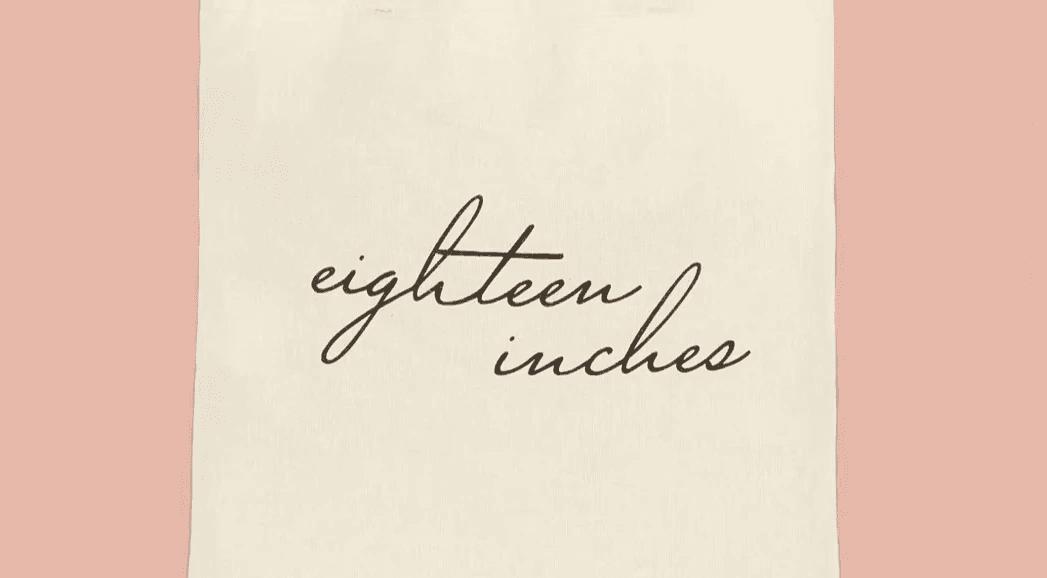 eighteen
inches